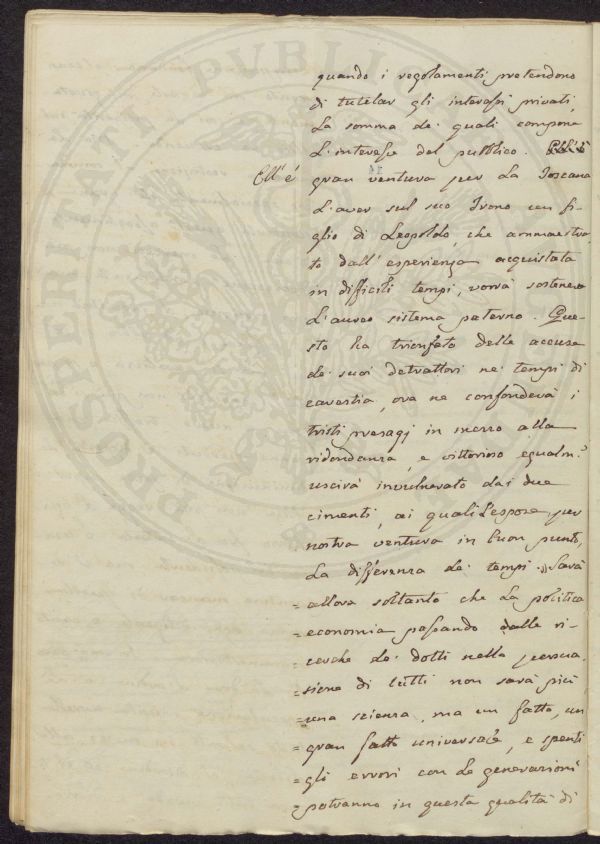 quando i regolamenti pretendono
di tutelar gli interessi privati,
la somma de' quali compone
l'interesse del pubblico.
Ell'è gran ventura per la Toscana
l'aver sul suo Trono un fi-
glio di Leopoldo, che ammaestra-
to dall'esperienza acquistata
in difficili tempi, vorrà sostenere
l'aureo sistema paterno. Que-
sto ha trionfato delle accuse
de' suoi detrattori ne' tempi di
carestia, ora ne confonderà i
tristi presagj in mezzo alla
ridondanza, e vittorioso egualm.e
uscirà invulnerato dai due
cimenti, ai quali l'espose, per
nostra ventura in buon punto,
la differenza de' tempi. „ Sarà
= allora soltanto che la politica
= economia passando dalle ri-
= cerche de' dotti nella persua-
= sione di tutti non sarà più
= una scienza, ma un fatto, un
= gran fatto universale, e spenti
= gli errori con le generazioni
= potranno in questa qualità di
PROSPERITATI PVBLICAE